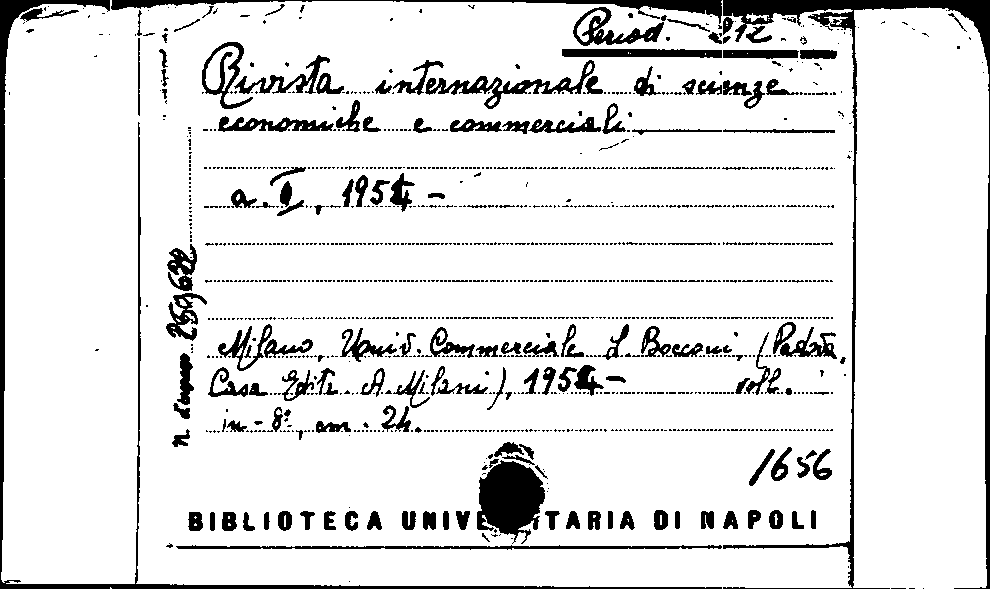 Period. 212
Rivista internazionale di scienze
economiche e commerciali.
a. II, 1954 -
N. d'ingresso 259622
Milano, Univ. Commerciale L. Bocconi, (Padova,
Casa Editr. A. Milani), 1954 - voll.
in - 8º, cm. 24.
1656
BIBLIOTECA UNIVE ITARIA DI NAPOLI